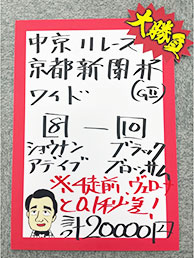 大勝負
中京11レース
京都新聞杯
ワイド GⅡ
8 — 10
ショウナン ブラック
アデイブ ブロッサム
※4徒前、ヴェロー
と0.1秒差!
計20000円